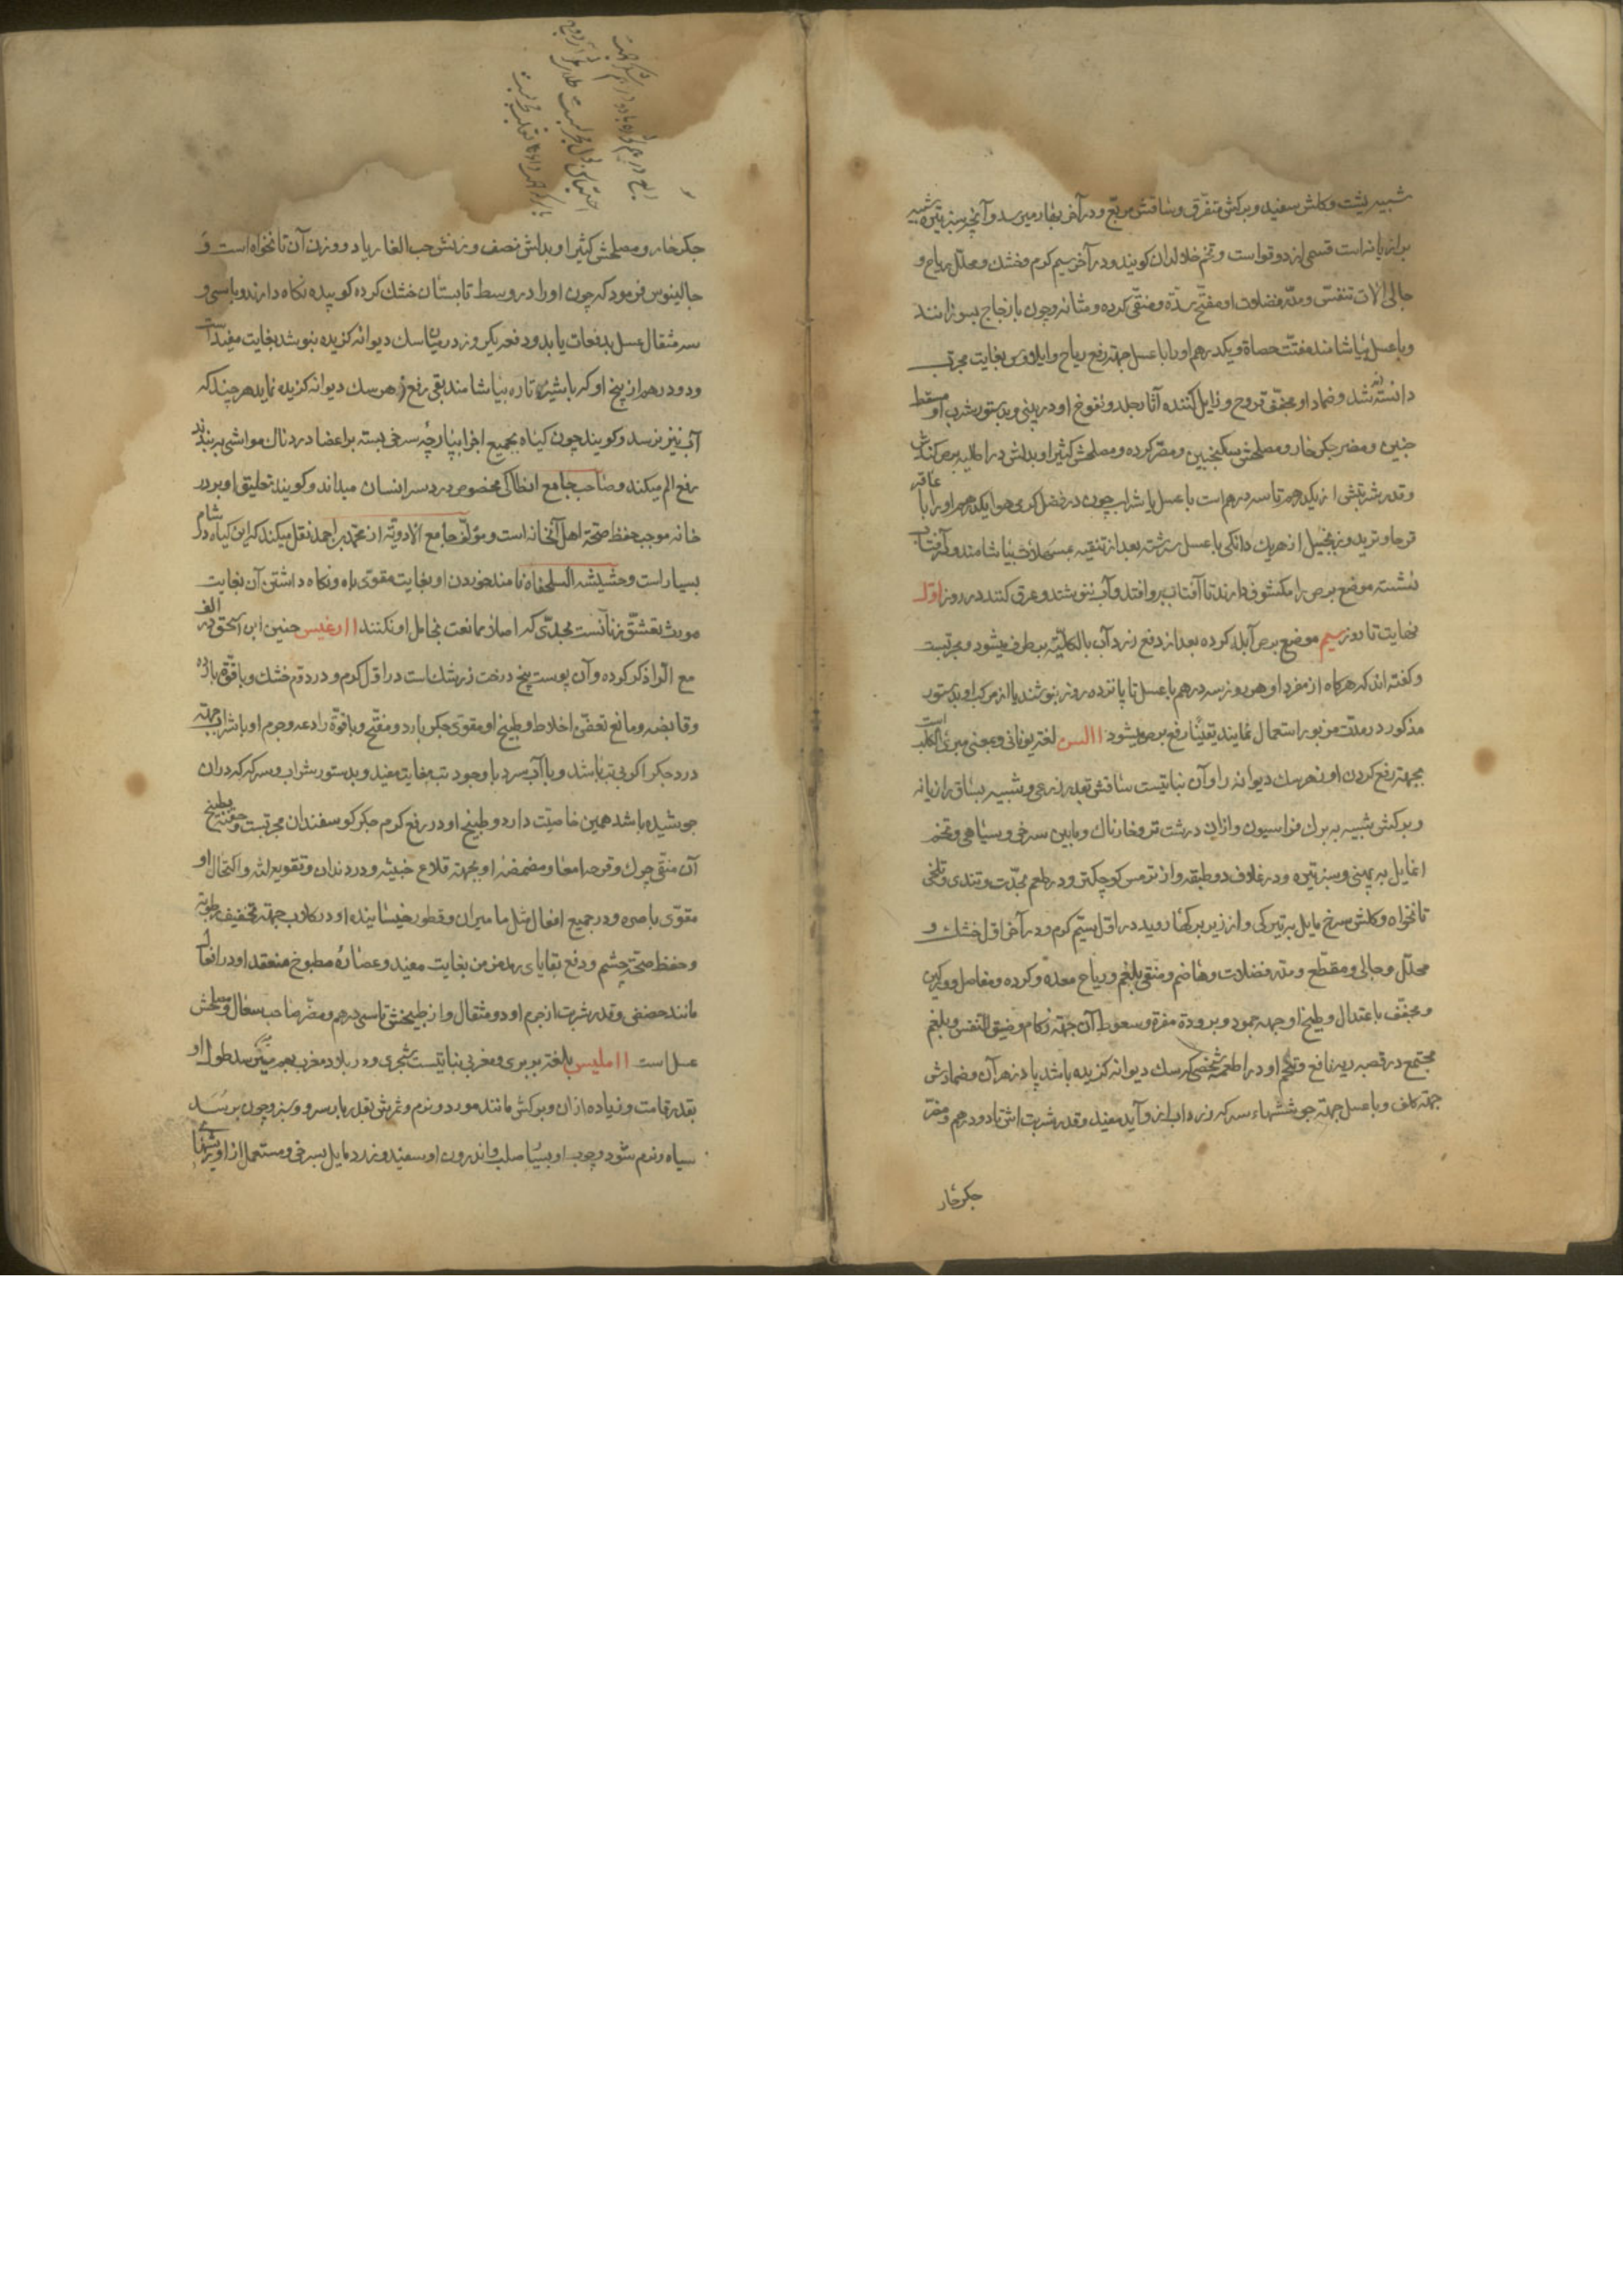 شبیه بشبت و کلش سفید و برکش متفرق و ساقش مربع و در آخر بهار میرسد و آنچه سبز تیره شبیه
برازیانه است قسمی از دوقواست و تخم خلال دان کویند و در آخر سیم کرم و خشک و محلل ریاح و
جالی آلات تنفس و مدر فضلات و مفتح سده و منقی کرده و مثانه و چون با زجاج بسوزانند
و با عسل بیاشامند مفتت حصاة و یکدرهم او را با عسل جهته رفع ریاح و ایلاوس بغایت مجرب
دانسته‌اند و ضماد او مجفف قروح و زایل کننده آثار جلد و نفوخ او در بینی و بدستور شرب او مسقط
جنین و مضر جکر حار و مصلحش سکنجبین و مضر کرده و مصلحش کثیرا و بدلش در اطلیه برص کندش
و قدر شربتش از یکدرهم تا سه درهم است با عسل یا شراب چون در فصل کرمی هوا یکدرهم او را با عاقر
قرحا و تربد و زنجبیل از هریک دانکی با عسل سرشته بعد از تنقیه بیاشامند و در آفتاب
نشسته موضع برص را مکشوف دارند تا آفتاب بر او افتد و آب ننوشند و عرق کنند در روز اول
نهایت تا روز سیم موضع برص آبله کرده بعد از دفع زرد آب بالکلیه برطرف میشود و مجربست
و کفته‌اند که هرکاه از مفرد او هر روز سه درهم با عسل تا پانزده روز بنوشند یا از مرکب او بدستور
مذکور در مدت مزبور استعمال نمایند یقینا رفع برص میشود االسن لغة یونانی و بمعنی مبرئ الکلب است
بجهته رفع کردن او زهر سک دیوانه را و آن نباتیست ساقش بقدر ذرعی و شبیه بساق رازیانه
و برکش شبیه ببرک فراسیون و از ان درشت تر و خارناک و مابین سرخی و سیاهی و تخم
ا مایل به پهنی و سبز تیره و در غلاف دو طبقه و از ترمس کوچکتر و در طعم با حدت و تندی و تلخی
نانخواه و کلش سرخ مایل بتیرکی و از زیر برکها روید در اول سیم کرم و در آخر اول خشک و
محلل و جالی و مقطع و مدر فضلات و هاضم و منقی بلغم و ریاح معده و کرده و مفاصل و ورکین
و مجفف باعتدال و طبیخ او جهة جمود و برودة مفرة و سعوط آن جهته زکام و ضیق النفس و بلغم
مجتمع در قصبه ریه نافع و تخم او در اطعمه شخصی که سک دیوانه کزیده باشد پادزهر آن و ضمادش
جهته کلف و با عسل جهته جوششهاء سر که زرداب از و آید مفید و قدر شربت اش تا دو درهم و مضر
جکر حار
جکر حار و مصلحش کثیرا و بدلش نصف وزنش حب الغار یا دو وزن آن نانخواه است و
جالینوس فرموده که چون او را در وسط تابستان خشک کرده کوبیده نکاه دارند و با سی و
سه مثقال عسل بدفعات یا بدو دفعه یکروز در میان سک دیوانه کزیده بنوشد بغایت مفید است
و دو درهم از بیخ او که با شیر تازه بیاشامند بقی رفع زهر سک دیوانه کزیده نماید هرچند که
آب نیز ترسد و کویند چون کیاه بجمیع اجزا بپارچه سرخی بسته بر اعضا دردناک مواشی بربندند
رفع الم میکند و صاحب جامع انطاکی مخصوص بدرد سر انسان میداند و کویند تعلیق او بر در
خانه موجب حفظ صحة اهل آنخانه است و مؤلف جامع الادویه از محمد بن احمد نقل میکند که این کیاه در شام
بسیار است و حشیشة السلحفاة نامند خوردن او بغایت مقوی باه و نکاه داشتن آن بغایت
مورث تعشق زنانست بحدی که اصلا ممانعت بحامل او نکنند اارغیس حنین ابن اسحق در الف
مع الرا ذکر کرده و آن پوست بیخ درخت زرشک است در اول کرم و در دوم خشک و با قوة بارده
و قابضه و مانع تعفن اخلاط و طبیخ او مقوی جکر بارد و مفتح و با قوة رادعه و جرم او با شراب جهته
درد جکر اکر بی تب باشد و با آب سرد با وجود تب بغایت مفید و بدستور شراب و سرکه که در ان
جوشیده باشد همین خاصیت دارد و طبیخ او در رفع کرم جکر کوسفندان مجربست و حقنه بطبیخ
آن منقی چرک و قرحه امعا و مضمضه او بجهته قلاع خبیثه و درد دندان و تقویه لثه و اکتحال او
مقوی باصره و در جمیع افعال مثل مامیران و قطور خیسانیده او در کلاب جهته تخفیف رطوبة
و حفظ صحة چشم و دفع بقایای رمد مزمن بغایت مفید و عصاره مطبوخ منعقد او در افعال
مانند حضض و قدر شربت از جرم او دو مثقال و از طبیخش تا سی درهم و مضر صاحب سعال و مصلحش
عسل است ااملیس بلغة بربری و مغربی نباتیست شجری و در بلاد مغرب بهم میرسد طول او
بقدر قامت و زیاده از ان و برکش مانند مورد و نرم و ثمرش بقدر بار سرو و سبز و چون برسد
سیاه و نرم شود و چوب او بسیار صلب و اندرون او سفید و زرد مایل بسرخی و مستعمل از او ریشهای